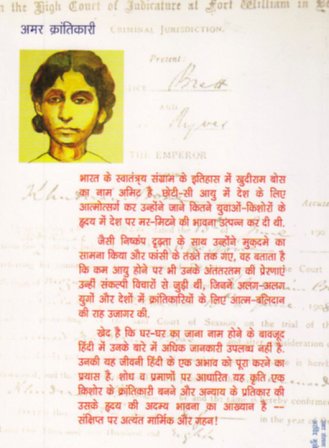 the High Court of Judicature at Fort William in
अमर क्रांतिकारी
CRIMINAL JURISDICTION.
Present:
Brett
AND
Ryves
THE EMPEROR
भारत के स्वातंत्र्य संग्राम के इतिहास में खुदीराम बोस
का नाम अमिट है. छोटी-सी आयु में देश के लिए
आत्मोत्सर्ग कर उन्होंने जाने कितने युवाओं-किशोरों के
हृदय में देश पर मर-मिटने की भावना उत्पन्न कर दी थी.
जैसी निष्कंप दृढ़ता के साथ उन्होंने मुकदमे का
सामना किया और फांसी के तख्ते तक गए, वह बताता है
कि कम आयु होने पर भी उनके अंतरतम की प्रेरणाएं
उन्हीं संकल्पी विचारों से जुड़ी थी, जिनने अलग-अलग
युगों और देशों में क्रांतिकारियों के लिए आत्म-बलिदान
की राह उजागर की.
खेद है कि घर-घर का जाना नाम होने के बावजूद
हिंदी में उनके बारे में अधिक जानकारी उपलब्ध नहीं है.
उनकी यह जीवनी हिंदी के एक अभाव को पूरा करने का
प्रयास है. शोध व प्रमाणों पर आधारित यह कृति एक
किशोर के क्रांतिकारी बनने और अन्याय के प्रतिकार की
उसके हृदय की अदम्य भावना का आख्यान है —
संक्षिप्त पर अत्यंत मार्मिक और गहन!